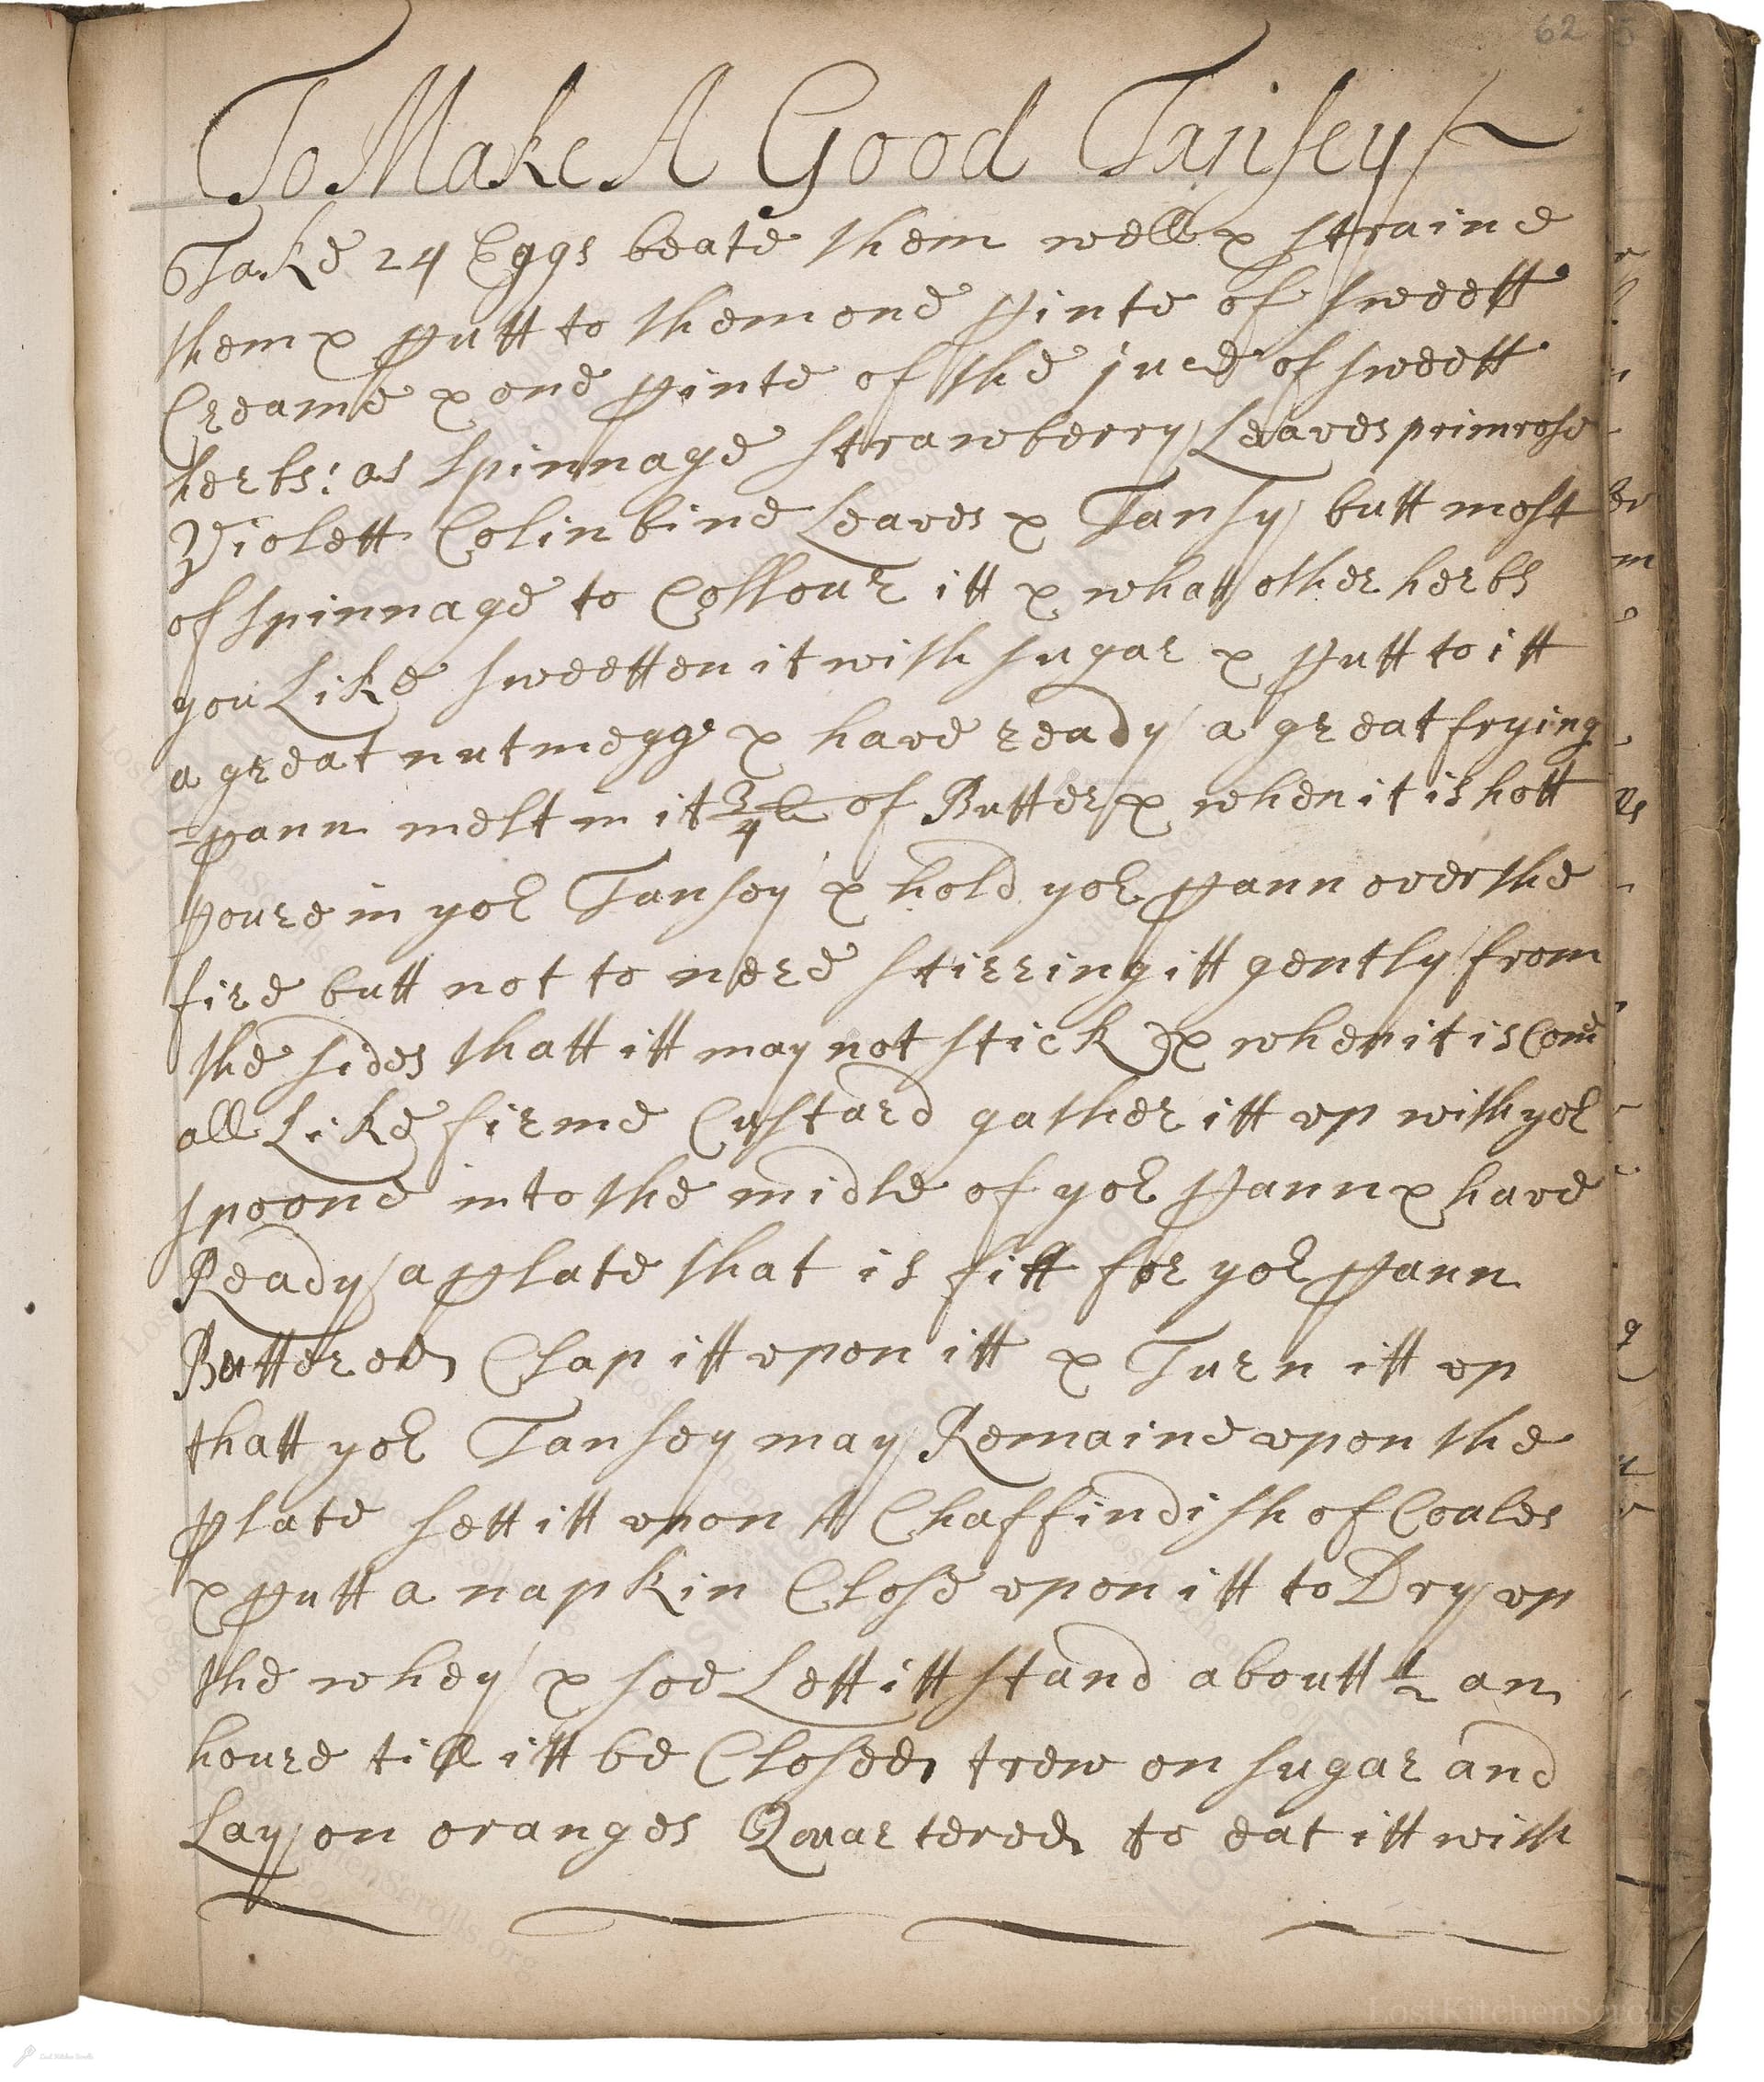 62
5
To Make A Good Tansey
Take 24 Eggs beate them well & straine
them & putt to them one pinte of sweett
Creame & one pinte of the juce of sweett
herbs: as spinnage strawberry Leaves primrose
Violett Colinbine Leaves & Tansy butt most
of spinnage to Collour itt & whatt other herbs
you Like sweetten it with sugar & putt to itt
a great nutmegg & have ready a great frying
pann melt in it 3/4 l of Butter & when it is hott
poure in yor Tansey & hold yor pann over the
fire butt not to nere stirring itt gently from
the sides thatt itt may not stick & when it is Come
all Like firme Custard gather itt up with yor
spoone into the midle of yor pann & have
Ready a plate that is fitt for yor pann
Buttered Clap itt upon itt & Turn itt up
thatt yor Tansey may Remaine upon the
plate sett itt upon A Chaffindish of Coales
& putt a napkin Close upon itt to Dry up
the whey & soe Lett itt stand aboutt 1/2 an
houre till itt be Closed trew on sugar and
Lay on oranges Quartered to eat itt with
LostKitchenScrolls
Lost Kitchen Scrolls